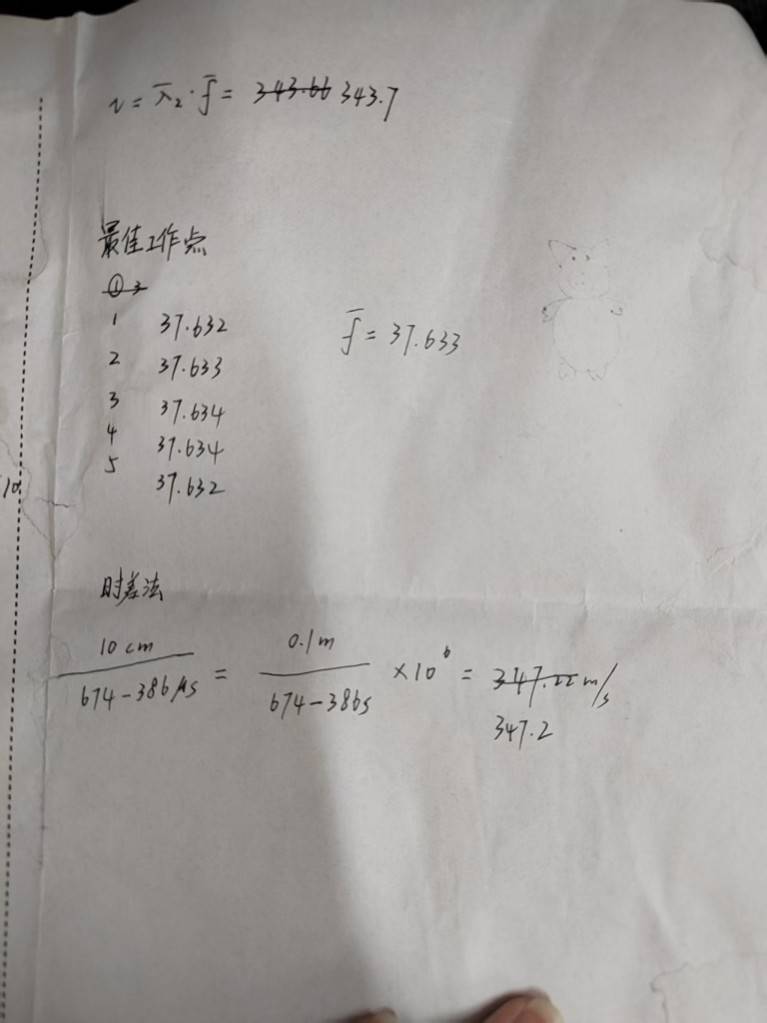 v = λ̄₂ · f̄ = 343.66 343.7
最佳工作点
①
1 37.632
2 37.633
3 37.634
4 37.634
5 37.632
f̄ = 37.633
时差法
10 cm / 674-386 μs = 0.1m / 674-386s ×10⁶ = 347.22 m/s
347.2
10